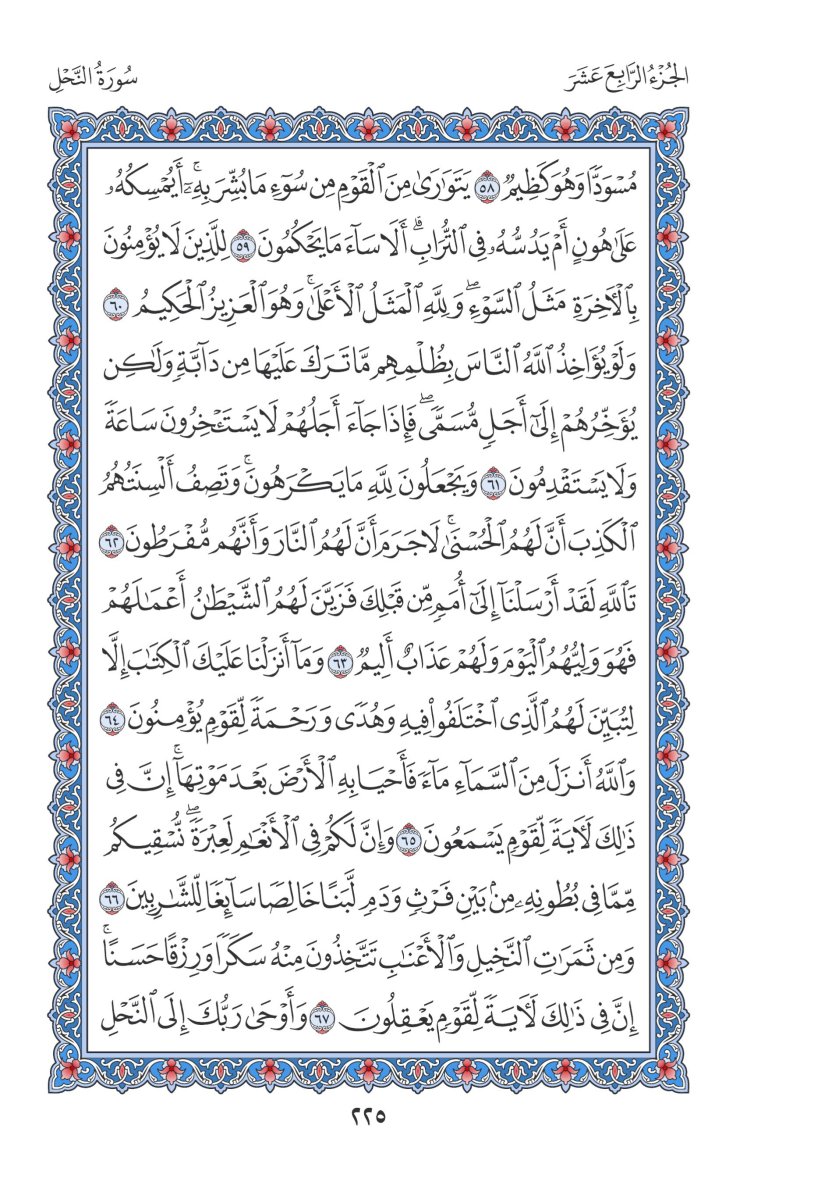 الجُزْءُ الرَّابِعَ عَشَرَ
سُورَةُ النَّحْلِ
مُسْوَدًّا وَهُوَ كَظِيمٌ ٥٨ يَتَوَارَىٰ مِنَ ٱلْقَوْمِ مِن سُوٓءِ مَا بُشِّرَ بِهِۦٓۚ أَيُمْسِكُهُۥ
عَلَىٰ هُونٍ أَمْ يَدُسُّهُۥ فِي ٱلتُّرَابِۗ أَلَا سَآءَ مَا يَحْكُمُونَ ٥٩ لِلَّذِينَ لَا يُؤْمِنُونَ
بِٱلْأَخِرَةِ مَثَلُ ٱلسَّوْءِۖ وَلِلَّهِ ٱلْمَثَلُ ٱلْأَعْلَىٰۚ وَهُوَ ٱلْعَزِيزُ ٱلْحَكِيمُ ٦٠
وَلَوْ يُؤَاخِذُ ٱللَّهُ ٱلنَّاسَ بِظُلْمِهِم مَّا تَرَكَ عَلَيْهَا مِن دَآبَّةٍ وَلَٰكِن
يُؤَخِّرُهُمْ إِلَىٰٓ أَجَلٍ مُّسَمًّىۖ فَإِذَا جَآءَ أَجَلُهُمْ لَا يَسْتَـْٔخِرُونَ سَاعَةً
وَلَا يَسْتَقْدِمُونَ ٦١ وَيَجْعَلُونَ لِلَّهِ مَا يَكْرَهُونَۚ وَتَصِفُ أَلْسِنَتُهُمُ
ٱلْكَذِبَ أَنَّ لَهُمُ ٱلْحُسْنَىٰۚ لَا جَرَمَ أَنَّ لَهُمُ ٱلنَّارَ وَأَنَّهُم مُّفْرَطُونَ ٦٢
تَٱللَّهِ لَقَدْ أَرْسَلْنَآ إِلَىٰٓ أُمَمٍ مِّن قَبْلِكَ فَزَيَّنَ لَهُمُ ٱلشَّيْطَٰنُ أَعْمَٰلَهُمْ
فَهُوَ وَلِيُّهُمُ ٱلْيَوْمَ وَلَهُمْ عَذَابٌ أَلِيمٌ ٦٣ وَمَآ أَنزَلْنَا عَلَيْكَ ٱلْكِتَٰبَ إِلَّا
لِتُبَيِّنَ لَهُمُ ٱلَّذِي ٱخْتَلَفُوا۟ فِيهِ وَهُدًى وَرَحْمَةً لِّقَوْمٍ يُؤْمِنُونَ ٦٤
وَٱللَّهُ أَنزَلَ مِنَ ٱلسَّمَآءِ مَآءً فَأَحْيَا بِهِ ٱلْأَرْضَ بَعْدَ مَوْتِهَآۚ إِنَّ فِي
ذَٰلِكَ لَأَيَةً لِّقَوْمٍ يَسْمَعُونَ ٦٥ وَإِنَّ لَكُمْ فِي ٱلْأَنْعَٰمِ لَعِبْرَةًۖ نُّسْقِيكُم
مِّمَّا فِي بُطُونِهِۦ مِنۢ بَيْنِ فَرْثٍ وَدَمٍ لَّبَنًا خَالِصًا سَآئِغًا لِّلشَّٰرِبِينَ ٦٦
وَمِن ثَمَرَٰتِ ٱلنَّخِيلِ وَٱلْأَعْنَٰبِ تَتَّخِذُونَ مِنْهُ سَكَرًا وَرِزْقًا حَسَنًاۚ
إِنَّ فِي ذَٰلِكَ لَأَيَةً لِّقَوْمٍ يَعْقِلُونَ ٦٧ وَأَوْحَىٰ رَبُّكَ إِلَى ٱلنَّحْلِ
٢٢٥